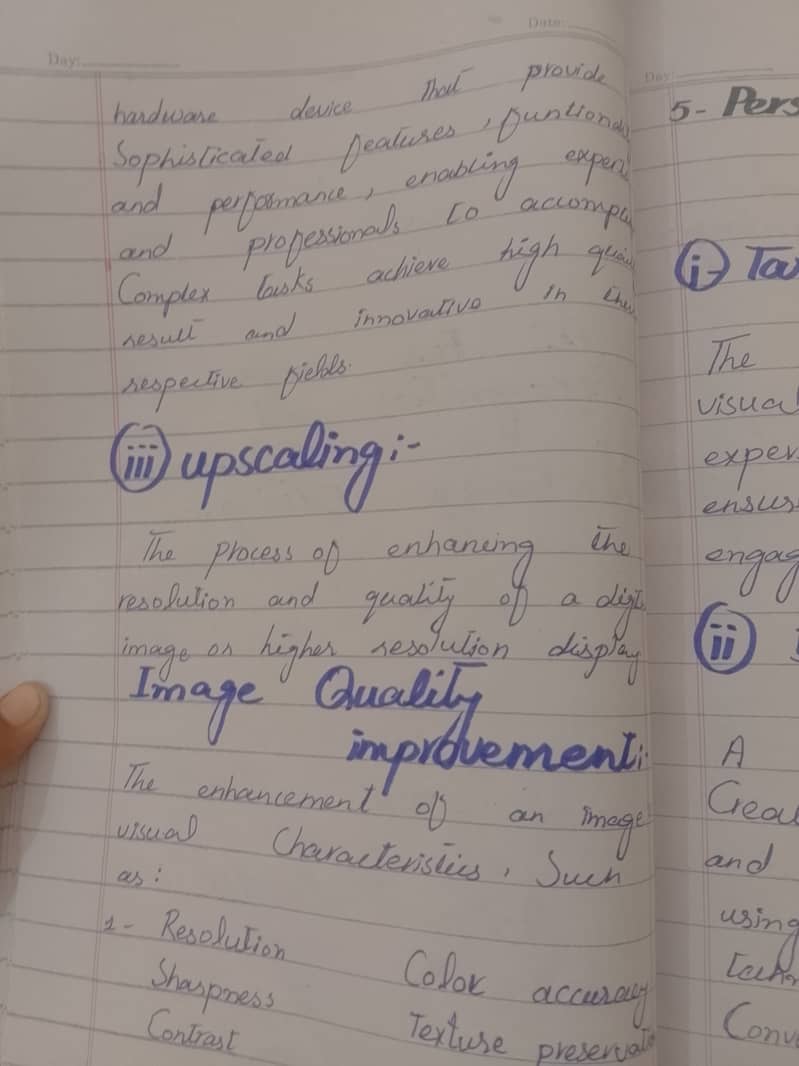 Date:
Day:
hardware device that provide
Sophisticated features, funtiona
and performance, enabling exper
and professionals to accompl
Complex tasks achieve high qual
result and innovative in the
respective fields.
(iii) upscaling:-
The process of enhancing the
resolution and quality of a digi
image or higher resolution display
Image Quality
improvement:
The enhancement of an image
visual Characteristics, Such
as:
1- Resolution Color accuracy
Sharpness Texture preservat
Contrast
Day:
5- Pers
(i) Ta
The
visual
exper
ensur
engag
(ii)
A
Creat
and
using
Conv